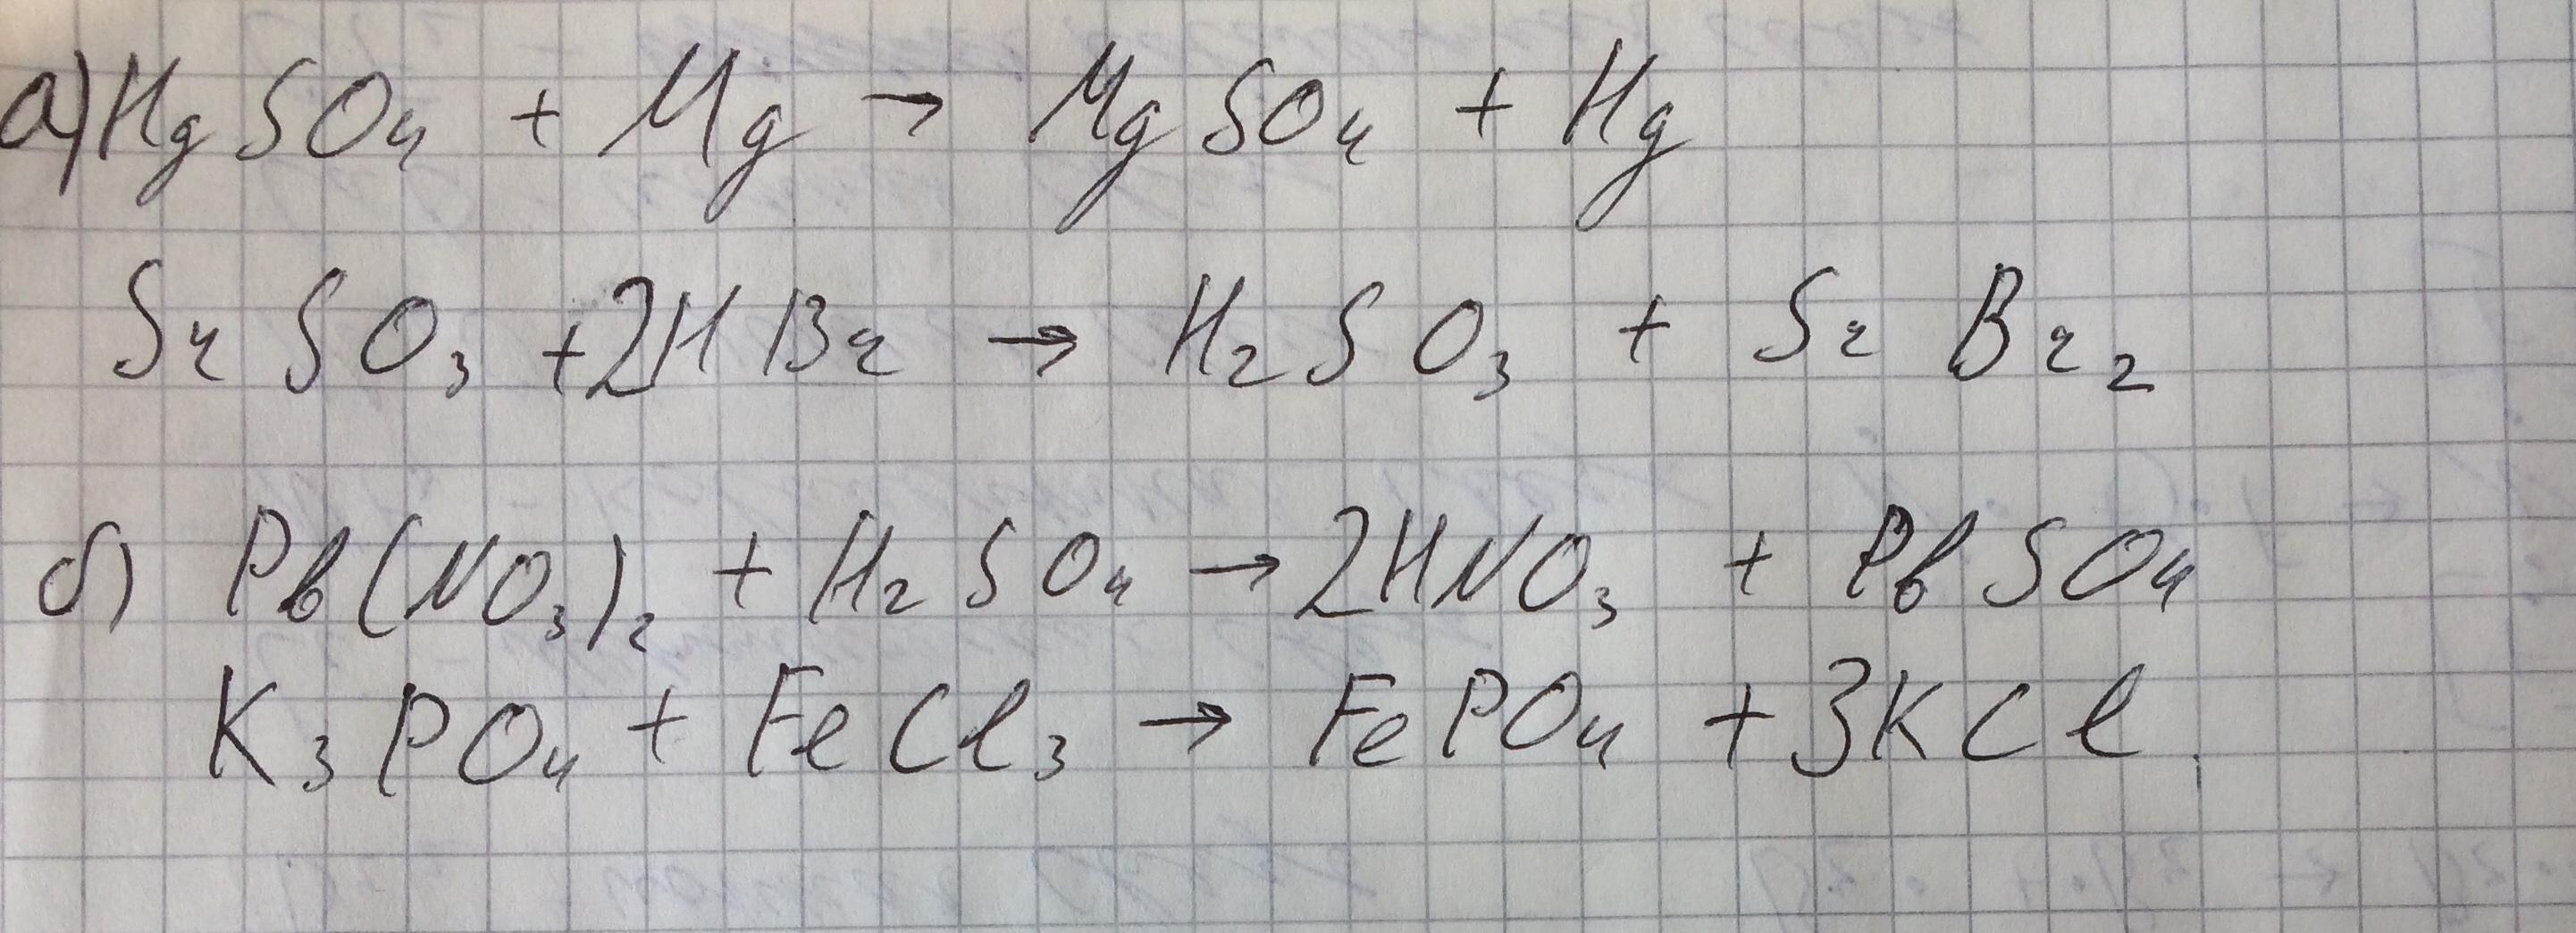 а) HgSO₄ + Mg → MgSO₄ + Hg
SrSO₃ + 2HBr → H₂SO₃ + SrBr₂
б) Pb(NO₃)₂ + H₂SO₄ → 2HNO₃ + PbSO₄
K₃PO₄ + FeCl₃ → FePO₄ + 3KCl